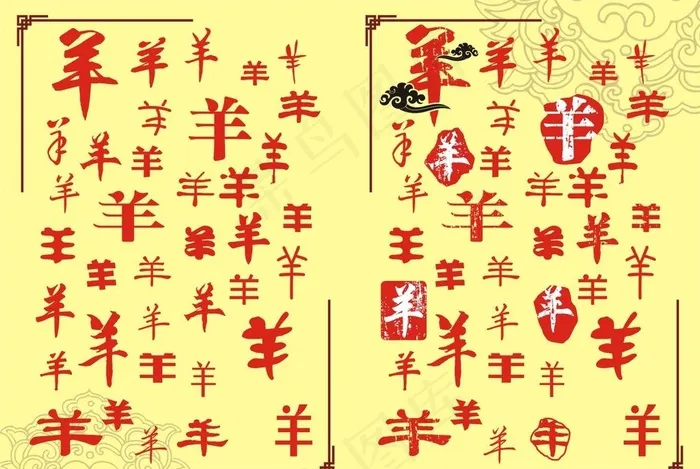 羊羊羊羊羊
羊羊羊
羊羊羊羊
羊羊羊
羊羊
羊羊羊
羊羊羊羊
羊羊羊
羊羊
羊羊羊
羊羊羊羊羊
羊羊羊羊羊
羊羊羊
羊羊羊羊
羊羊羊
羊羊
羊羊羊
羊羊羊羊
羊羊羊
羊羊
羊羊羊
羊羊羊羊羊